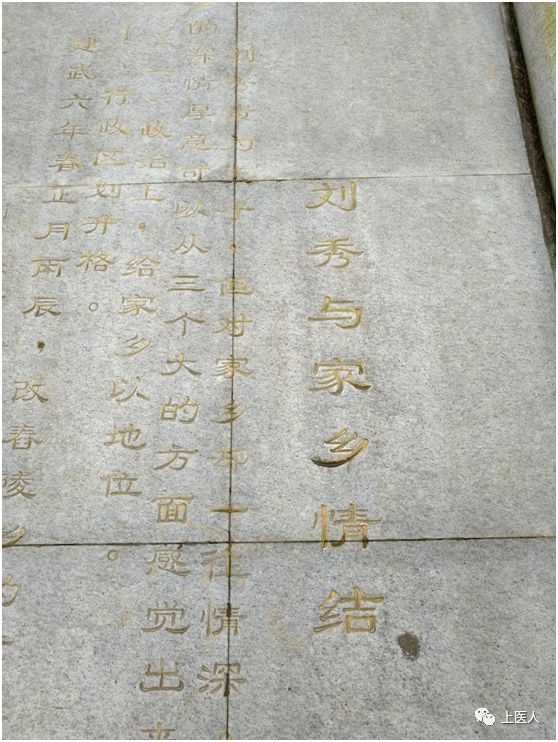 刘秀与家乡情结
刘秀贵为天子，但对家乡却一往情深，
的深情厚意可以从三个大的方面感觉出来
一、政治上，给家乡以地位。
1、行政区划升格。
建武六年春正月丙辰，改舂陵乡
上医人